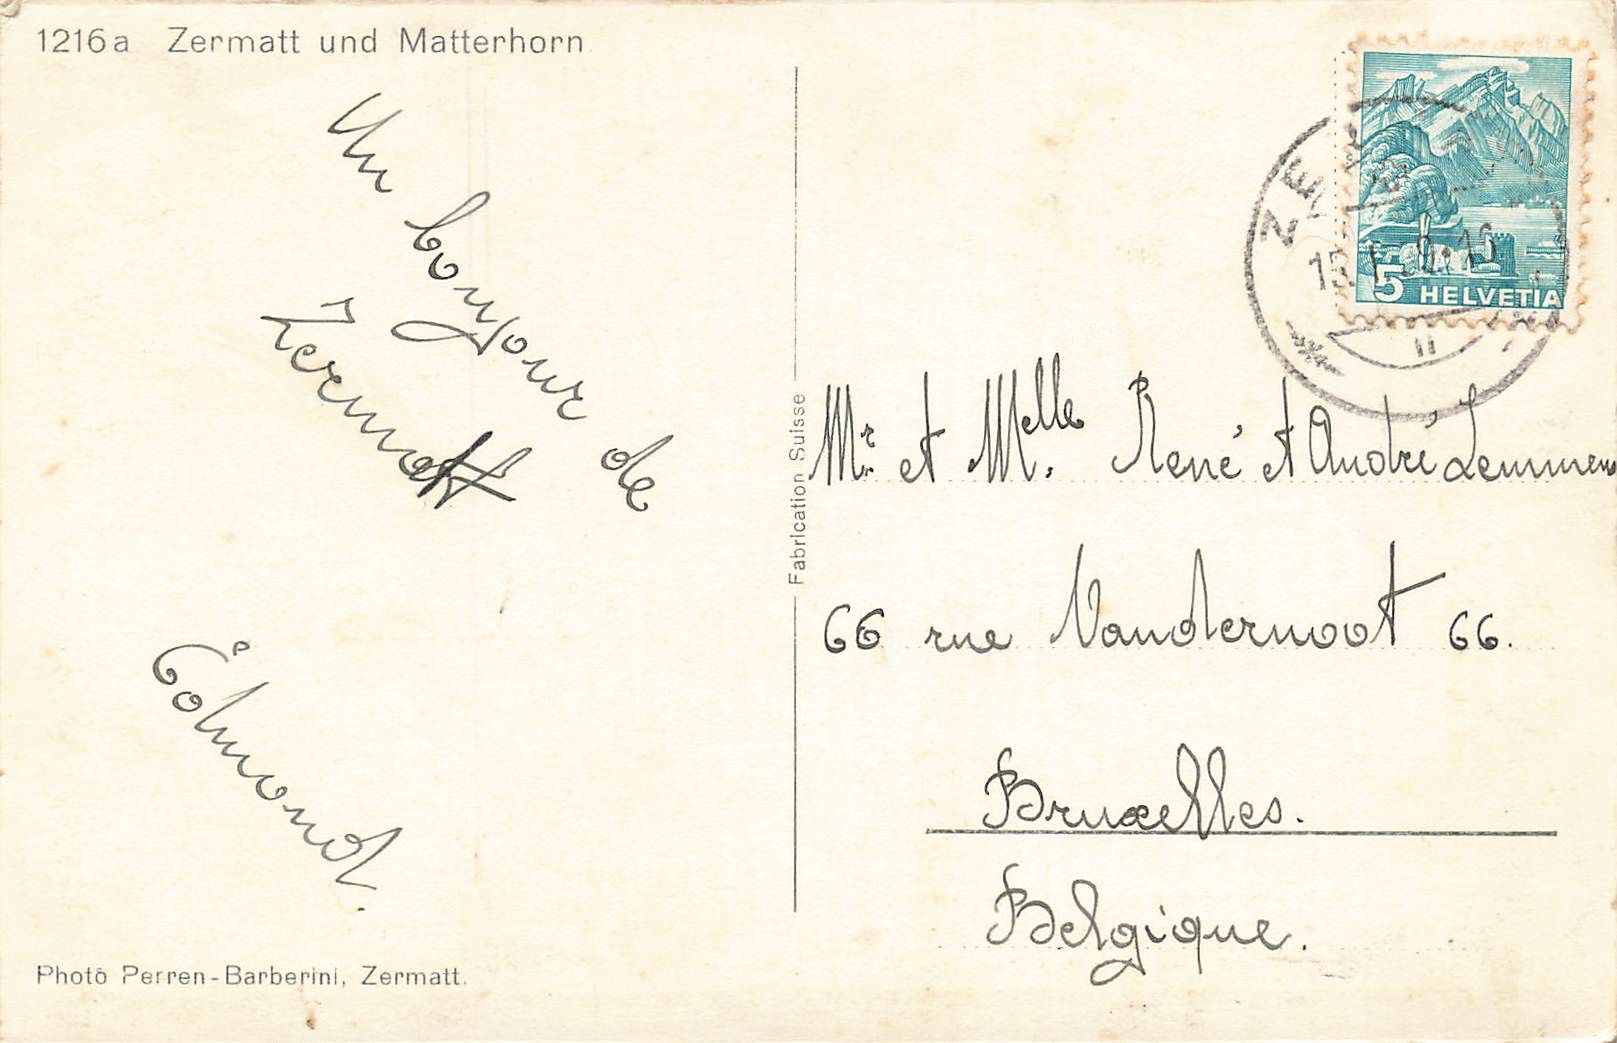 1216a Zermatt und Matterhorn
Un bonjour de
Zermatt
Edmond.
Photo Perren-Barberini, Zermatt.
Fabrication Suisse
5 HELVETIA
ZE
Mr. et Melle. René et André Lemmens
66 rue Vandernoot 66.
Bruxelles.
Belgique.